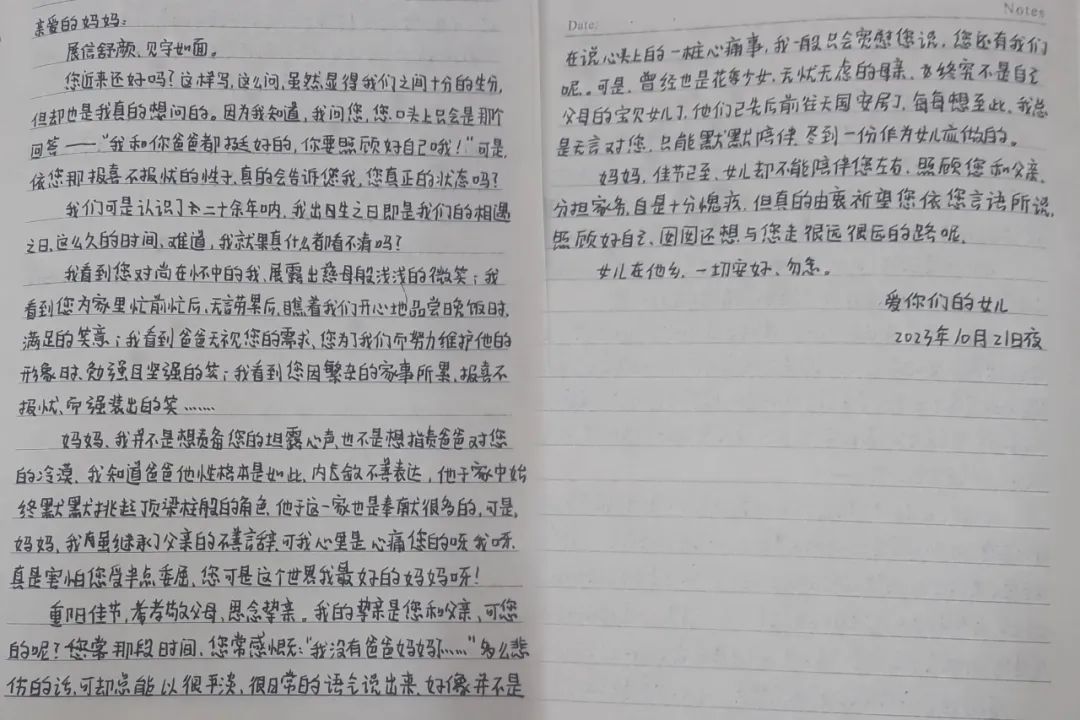 亲爱的妈妈：
展信舒颜，见字如面。
您近来还好吗？这样写，这么问，虽然显得我们之间十分的生分，
但却也是我真的想问的。因为我知道，我问您，您口头上只会是那个
回答——“我和你爸爸都挺好的，你要照顾好自己哦！”可是，
依您那报喜不报忧的性子，真的会告诉您我，您真正的状态吗？
我们可是认识了二十余年呐，我出生之日即是我们的相遇
之日，这么久的时间，难道，我就果真什么都看不清吗？
我看到您对尚在怀中的我，展露出慈母般浅浅的微笑；我
看到您为家里忙前忙后，无言劳累后，瞧着我们开心地品尝晚饭时，
满足的笑意；我看到爸爸无视您的需求，您为了我们而努力维护他的
形象时，勉强且坚强的笑；我看到您因繁杂的家事所累，报喜不
报忧，而强装出的笑……
妈妈，我并不是想责备您的坦露心声，也不是想指责爸爸对您
的冷漠，我知道爸爸他性格本是如此，内敛不善表达，他于家中始
终默默挑起顶梁柱般的角色，他于这一家也是奉献很多的，可是，
妈妈，我虽继承了父亲的不善言辞，可我心里是心痛您的呀，我呀，
真是害怕您受半点委屈，您可是这个世界我最好的妈妈呀！
重阳佳节，孝敬父母，思念挚亲。我的挚亲是您和父亲，可您
的呢？您常那段时间，您常感慨：“我没有爸爸妈妈了……”多么悲
伤的话，可却总能以很平淡，很日常的语气说出来，好像并不是
Notes
Date:
在说心头上的一桩心痛事，我一般只会宽慰您说，您还有我们
呢。可是，曾经也是花季少女，无忧无虑的母亲，终究不是自己
父母的宝贝女儿了，他们已先后前往天国安居了，每每想至此，我总
是无言对您，只能默默陪伴，尽到一份作为女儿应做的。
妈妈，佳节已至，女儿却不能陪伴您左右，照顾您和父亲，
分担家务，自是十分愧疚，但真的由衷祈望您依您言语所说，
照顾好自己，囡囡还想与您走很远很远的路呢。
女儿在他乡，一切安好，勿念。
爱你们的女儿
2023年10月21日夜